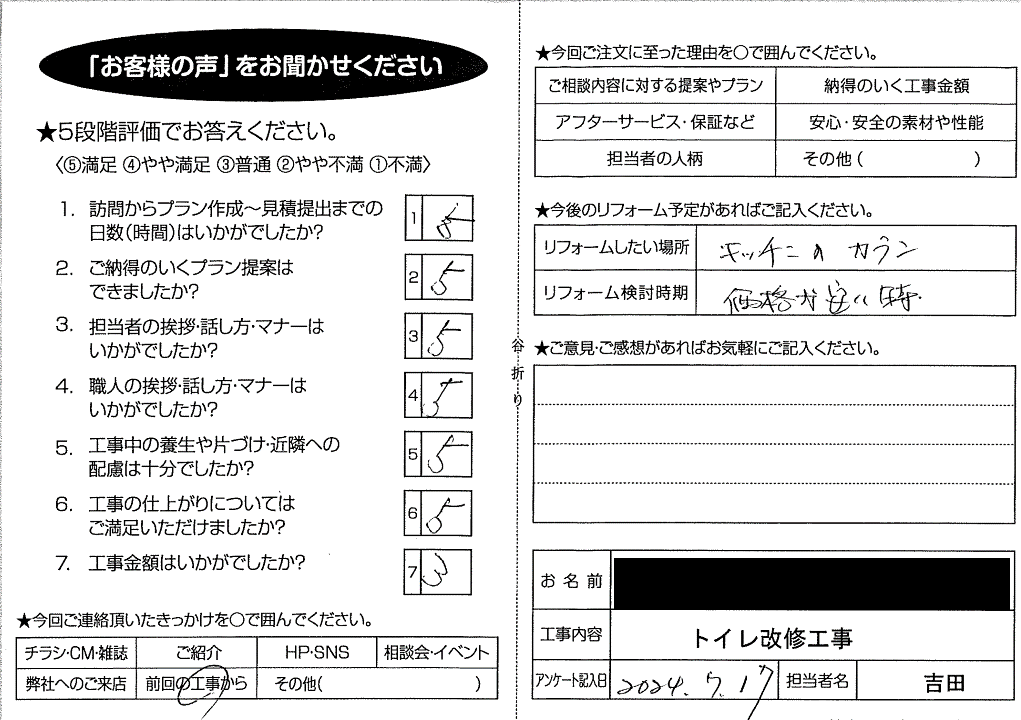 「お客様の声」をお聞かせください
★5段階評価でお答えください。
〈⑤満足 ④やや満足 ③普通 ②やや不満 ①不満〉
1. 訪問からプラン作成～見積提出までの
日数(時間)はいかがでしたか?
1 5
2. ご納得のいくプラン提案は
できましたか?
2 5
3. 担当者の挨拶・話し方・マナーは
いかがでしたか?
3 5
4. 職人の挨拶・話し方・マナーは
いかがでしたか?
4 5
5. 工事中の養生や片づけ・近隣への
配慮は十分でしたか?
5 5
6. 工事の仕上がりについては
ご満足いただけましたか?
6 5
7. 工事金額はいかがでしたか?
7 3
★今回ご連絡頂いたきっかけを〇で囲んでください。
チラシ・CM・雑誌 ご紹介 HP・SNS 相談会・イベント
弊社へのご来店 前回の工事から その他( )
谷折り
★今回ご注文に至った理由を〇で囲んでください。
ご相談内容に対する提案やプラン 納得のいく工事金額
アフターサービス・保証など 安心・安全の素材や性能
担当者の人柄 その他( )
★今後のリフォーム予定があればご記入ください。
リフォームしたい場所 キッチンのカラン
リフォーム検討時期 価格が安い時.
★ご意見・ご感想があればお気軽にご記入ください。
お名前
工事内容 トイレ改修工事
アンケート記入日 2024.7.17 担当者名 吉田